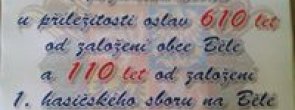 u příležitosti oslav 610 let
od založení obce Bělé
a 110 let od založení
1. hasičského sboru na Bělé